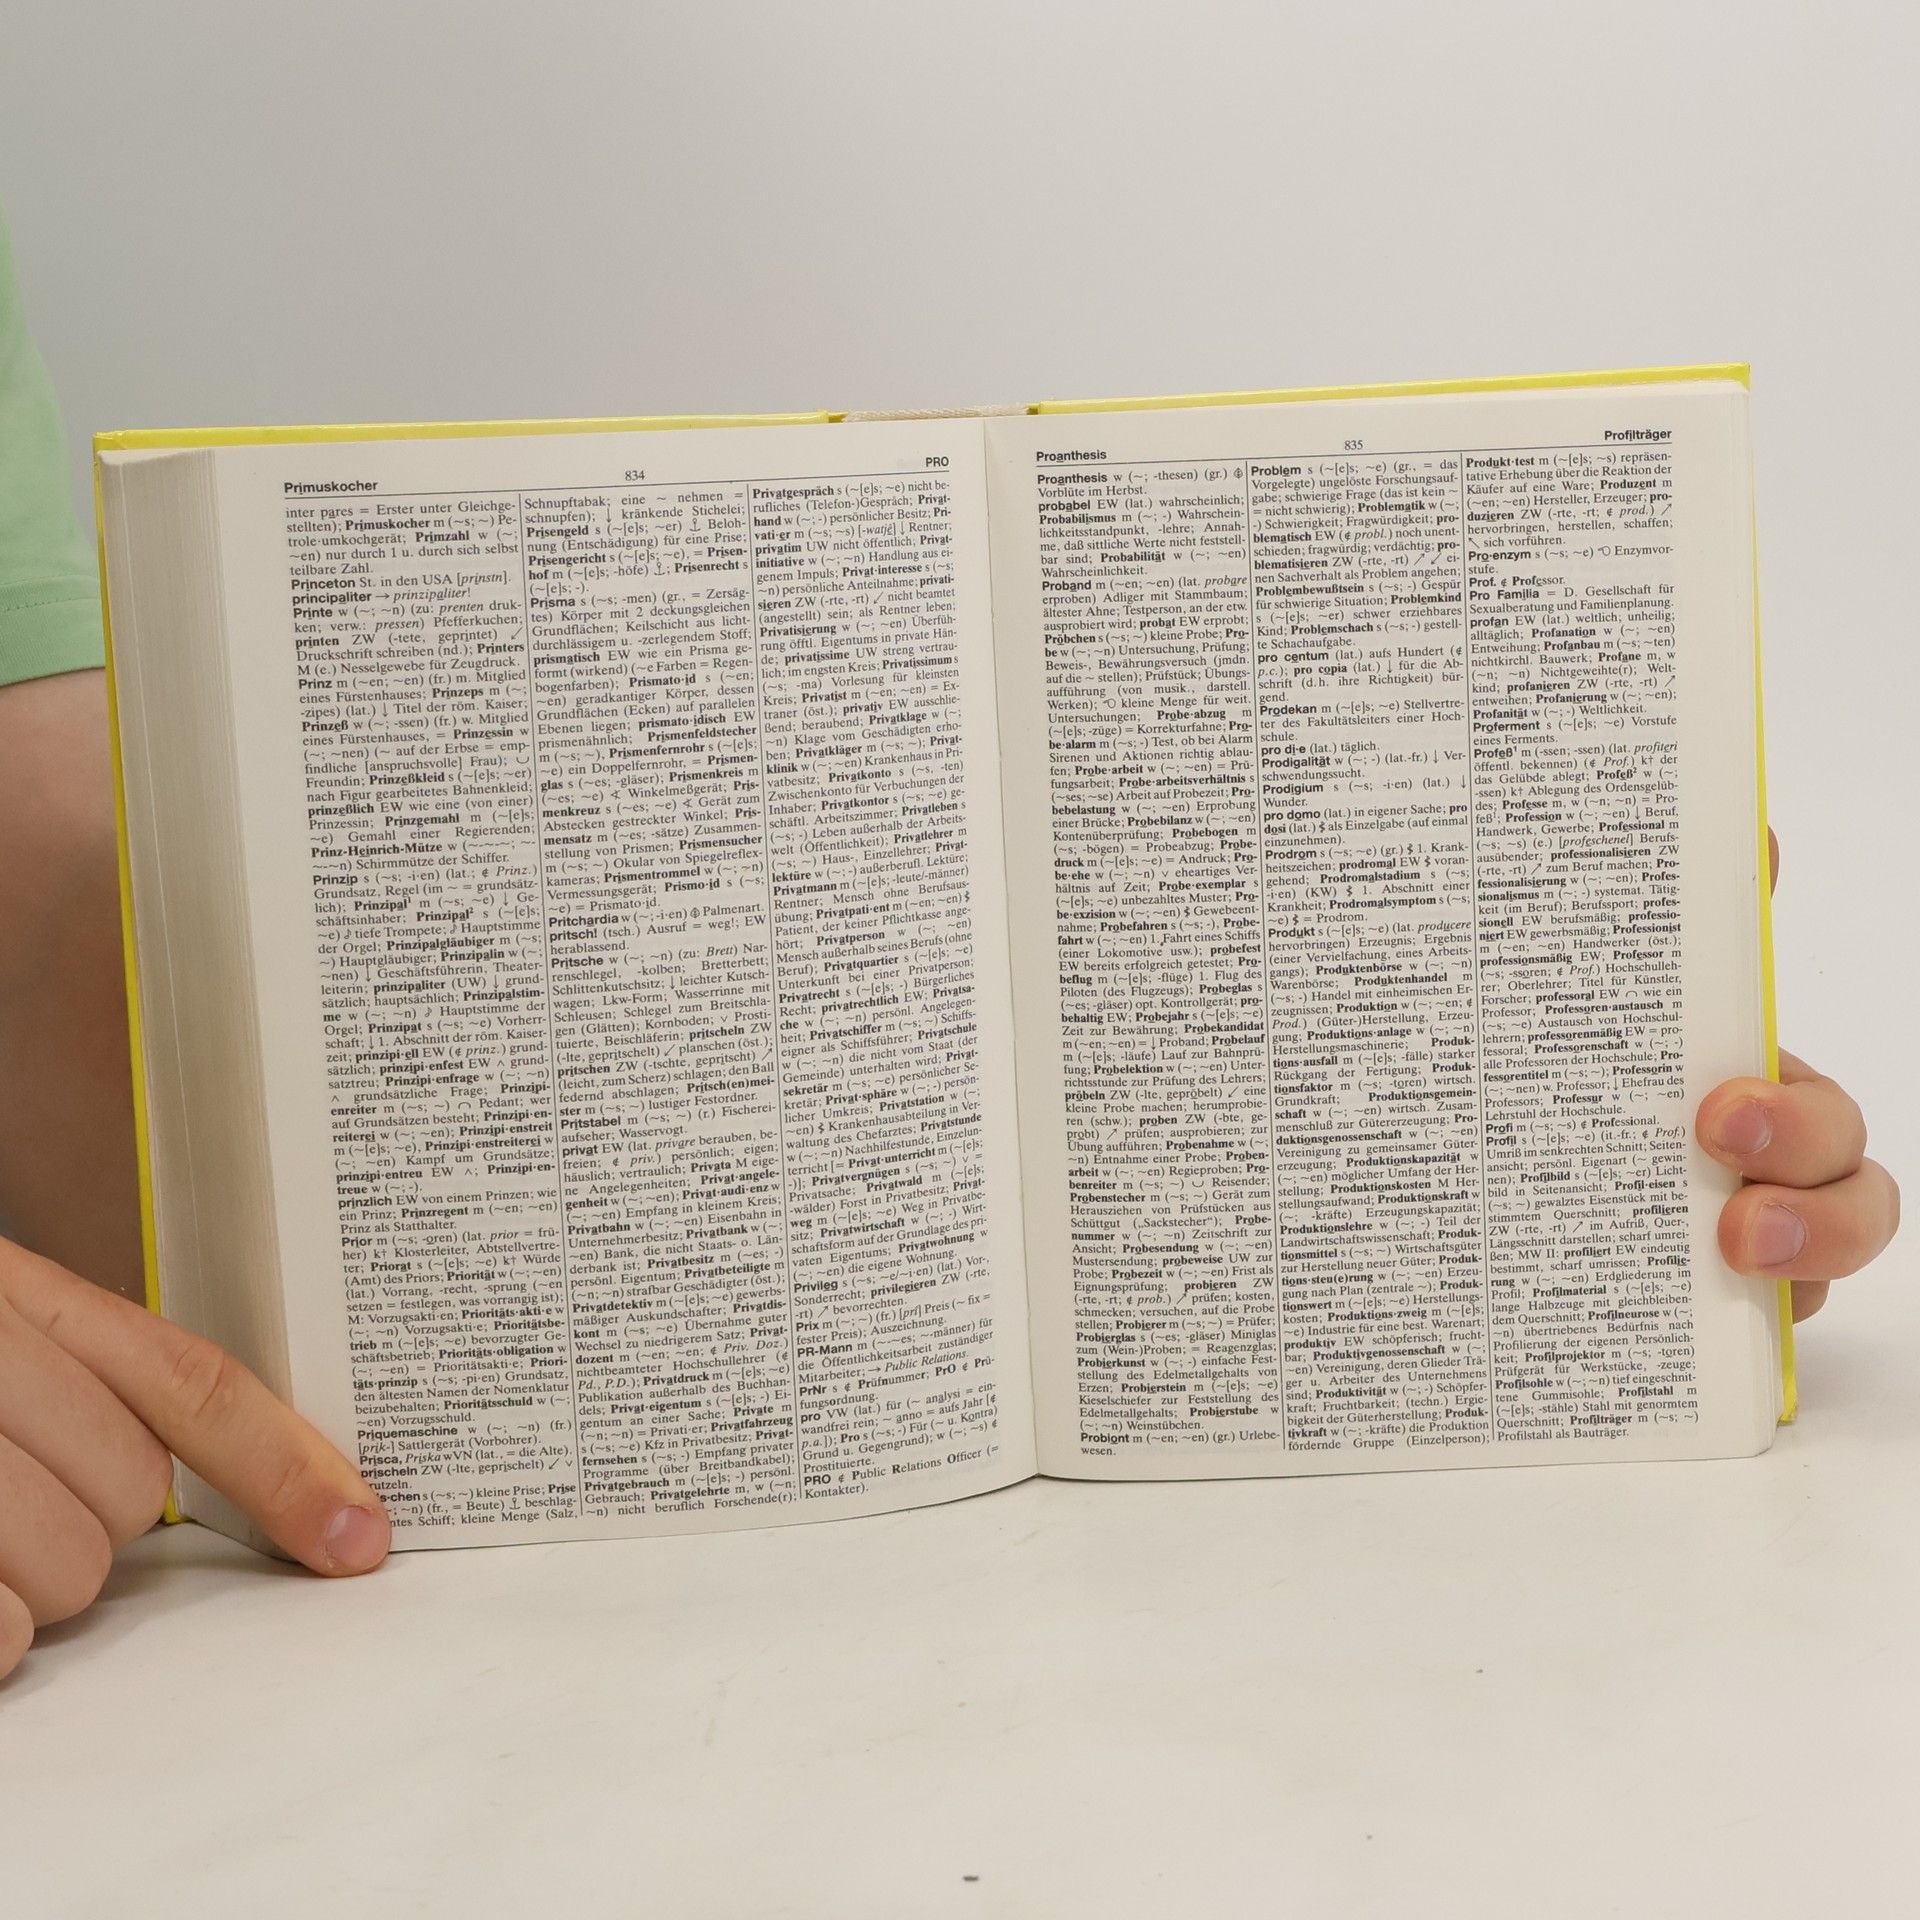 Primuskocher
834
PRO
inter pares = Erster unter Gleichge-
stellten); Primuskocher m (~s; ~) Pe-
trole·umkochgerät; Primzahl w (~;
~en) nur durch 1 u. durch sich selbst
teilbare Zahl.
Princeton St. in den USA [prinstn].
principaliter → prinzipaliter!
Printe w (~; ~n) (zu: prenten druk-
ken; verw.: pressen) Pfefferkuchen;
printen ZW (-tete, geprintet) ↙
Druckschrift schreiben (nd.); Printers
M (e.) Nesselgewebe für Zeugdruck.
Prinz m (~en; ~en) (fr.) m. Mitglied
eines Fürstenhauses; Prinzeps m (~;
-zipes) (lat.) ↓ Titel der röm. Kaiser;
Prinzeß w (~; -ssen) (fr.) w. Mitglied
eines Fürstenhauses, = Prinzessin w
(~; ~nen) (~ auf der Erbse = emp-
findliche [anspruchsvolle] Frau); ◡
Freundin; Prinzeßkleid s (~[e]s; ~er)
nach Figur gearbeitetes Bahnenkleid;
prinzeßlich EW wie eine (von einer)
Prinzessin; Prinzgemahl m (~[e]s;
~e) Gemahl einer Regierenden;
Prinz-Heinrich-Mütze w (~-~-~; ~-
~-~n) Schirmmütze der Schiffer.
Prinzip s (~s; -i·en) (lat.; ¢ Prinz.)
Grundsatz, Regel (im ~ = grundsätz-
lich); Prinzipal¹ m (~s; ~e) ↓ Ge-
schäftsinhaber; Prinzipal² s (~[e]s;
~e) ♪ tiefe Trompete; ♪ Hauptstimme
der Orgel; Prinzipalgläubiger m (~s;
~) Hauptgläubiger; Prinzipalin w (~;
~nen) ↓ Geschäftsführerin, Theater-
leiterin; prinzipaliter (UW) ↓ grund-
sätzlich; hauptsächlich; Prinzipalstim-
me w (~; ~n) ♪ Hauptstimme der
Orgel; Prinzipat s (~s; ~e) Vorherr-
schaft; ↓ 1. Abschnitt der röm. Kaiser-
zeit; prinzipi·ell EW (¢ prinz.) grund-
sätzlich; prinzipi·enfest EW ∧ grund-
satztreu; Prinzipi·enfrage w (~; ~n)
∧ grundsätzliche Frage; Prinzipi-
enreiter m (~s; ~) ◠ Pedant; wer
auf Grundsätzen besteht; Prinzipi·en-
reiterei w (~; ~en); Prinzipi·enstreit
m (~[e]s; ~e), Prinzipi·enstreiterei w
(~; ~en) Kampf um Grundsätze;
prinzipi·entreu EW ∧; Prinzipi·en-
treue w (~; -).
prinzlich EW von einem Prinzen; wie
ein Prinz; Prinzregent m (~en; ~en)
Prinz als Statthalter.
Prior m (~s; -oren) (lat. prior = frü-
her) k† Klosterleiter, Abtstellvertre-
ter; Priorat s (~[e]s; ~e) k† Würde
(Amt) des Priors; Priorität w (~; ~en)
(lat.) Vorrang, -recht, -sprung (~en
setzen = festlegen, was vorrangig ist);
M: Vorzugsakti·en; Prioritäts·akti·e w
(~; ~n) Vorzugsakti·e; Prioritätsbe-
trieb m (~[e]s; ~e) bevorzugter Ge-
schäftsbetrieb; Prioritäts·obligation w
(~; ~en) = Prioritätsakti·e; Priori-
täts·prinzip s (~s; -pi·en) Grundsatz,
den ältesten Namen der Nomenklatur
beizubehalten; Prioritätsschuld w (~;
~en) Vorzugsschuld.
Priquemaschine w (~; ~n) (fr.)
[prik-] Sattlergerät (Vorbohrer).
Prisca, Priska wVN (lat., = die Alte).
prischeln ZW (-lte, geprischelt) ↙ ∨
rutzeln.
s·chen s (~s; ~) kleine Prise; Prise
; ~n) (fr., = Beute) ⚓ beschlag-
ntes Schiff; kleine Menge (Salz,
Schnupftabak; eine ~ nehmen =
schnupfen); ↓ kränkende Stichelei;
Prisengeld s (~[e]s; ~er) ⚓ Beloh-
nung (Entschädigung) für eine Prise;
Prisengericht s (~[e]s; ~e), = Prisen-
hof m (~[e]s; -höfe) ⚓; Prisenrecht s
(~[e]s; -).
Prisma s (~s; -men) (gr., = Zersäg-
tes) Körper mit 2 deckungsgleichen
Grundflächen; Keilschicht aus licht-
durchlässigem u. -zerlegendem Stoff;
prismatisch EW wie ein Prisma ge-
formt (wirkend) (~e Farben = Regen-
bogenfarben); Prismato·id s (~en;
~en) geradkantiger Körper, dessen
Grundflächen (Ecken) auf parallelen
Ebenen liegen; prismato·idisch EW
prismenähnlich; Prismenfeldstecher
m (~s; ~), Prismenfernrohr s (~[e]s;
~e) ein Doppelfernrohr, = Prismen-
glas s (~es; -gläser); Prismenkreis m
(~es; ~e) ∢ Winkelmeßgerät; Pris-
menkreuz s (~es; ~e) ∢ Gerät zum
Abstecken gestreckter Winkel; Pris-
mensatz m (~es; -sätze) Zusammen-
stellung von Prismen; Prismensucher
m (~s; ~) Okular von Spiegelreflex-
kameras; Prismentrommel w (~; ~n)
Vermessungsgerät; Prismo·id s (~s;
~e) = Prismato·id.
Pritchardia w (~; -i·en) Palmenart.
pritsch! (tsch.) Ausruf = weg!; EW
herablassend.
Pritsche w (~; ~n) (zu: Brett) Nar-
renschlegel, -kolben; Bretterbett;
Schlittenkutschsitz; ↓ leichter Kutsch-
wagen; Lkw-Form; Wasserrinne mit
Schleusen; Schlegel zum Breitschla-
gen (Glätten); Kornboden; ∨ Prosti-
tuierte, Beischläferin; pritscheln ZW
(-lte, gepritschelt) ↙ planschen (öst.);
pritschen ZW (-tschte, gepritscht) ↗
(leicht, zum Scherz) schlagen; den Ball
federnd abschlagen; Pritsch(en)mei-
ster m (~s; ~) lustiger Festordner.
Pritstabel m (~s; ~) (r.) Fischerei-
aufseher; Wasservogt.
privat EW (lat. privare berauben, be-
freien; ¢ priv.) persönlich; eigen;
häuslich; vertraulich; Privata M eige-
ne Angelegenheiten; Privat·angele-
genheit w (~; ~en); Privat·audi·enz w
(~; ~en) Empfang in kleinem Kreis;
Privatbahn w (~; ~en) Eisenbahn in
Unternehmerbesitz; Privatbank w (~;
~en) Bank, die nicht Staats- o. Län-
derbank ist; Privatbesitz m (~es; -)
persönl. Eigentum; Privatbeteiligte m
(~n; ~n) strafbar Geschädigter (öst.);
Privatdetektiv m (~[e]s; ~e) gewerbs-
mäßiger Auskundschafter; Privatdis-
kont m (~s; ~e) Übernahme guter
Wechsel zu niedrigerem Satz; Privat-
dozent m (~en; ~en; ¢ Priv. Doz.)
nichtbeamteter Hochschullehrer (¢
Pd., P.D.); Privatdruck m (~[e]s; ~e)
Publikation außerhalb des Buchhan-
dels; Privat·eigentum s (~[e]s; -) Ei-
gentum an einer Sache; Private m
(~n; ~n) = Privati·er; Privatfahrzeug
s (~s; ~e) Kfz in Privatbesitz; Privat-
fernsehen s (~s; -) Empfang privater
Programme (über Breitbandkabel);
Privatgebrauch m (~[e]s; -) persönl.
Gebrauch; Privatgelehrte m, w (~n;
~n) nicht beruflich Forschende(r);
Privatgespräch s (~[e]s; ~e) nicht be-
rufliches (Telefon-)Gespräch; Privat-
hand w (~; -) persönlicher Besitz; Pri-
vati·er m (~s; ~s) [-watjé] ↓ Rentner;
privatim UW nicht öffentlich; Privat-
initiative w (~; ~n) Handlung aus ei-
genem Impuls; Privat·interesse s (~s;
~n) persönliche Anteilnahme; privati-
sieren ZW (-rte, -rt) ↙ nicht beamtet
(angestellt) sein; als Rentner leben;
Privatisierung w (~; ~en) Überfüh-
rung öfftl. Eigentums in private Hän-
de; privatissime UW streng vertrau-
lich; im engsten Kreis; Privatissimum s
(~s; -ma) Vorlesung für kleinsten
Kreis; Privatist m (~en; ~en) = Ex-
traner (öst.); privativ EW ausschlie-
ßend; beraubend; Privatklage w (~;
~n) Klage vom Geschädigten erho-
ben; Privatkläger m (~s; ~); Privat-
klinik w (~; ~en) Krankenhaus in Pri-
vatbesitz; Privatkonto s (~s, -ten)
Zwischenkonto für Verbuchungen der
Inhaber; Privatkontor s (~s; ~e) ge-
schäftl. Arbeitszimmer; Privatleben s
(~s; -) Leben außerhalb der Arbeits-
welt (Öffentlichkeit); Privatlehrer m
(~s; ~) Haus-, Einzellehrer; Privat-
lektüre w (~; -) außerberufl. Lektüre;
Privatmann m (~[e]s; -leute/-männer)
Rentner; Mensch ohne Berufsaus-
übung; Privatpati·ent m (~en; ~en) $
Patient, der keiner Pflichtkasse ange-
hört; Privatperson w (~; ~en)
Mensch außerhalb seines Berufs (ohne
Beruf); Privatquartier s (~[e]s; ~e)
Unterkunft bei einer Privatperson;
Privatrecht s (~[e]s; -) Bürgerliches
Recht; privatrechtlich EW; Privatsa-
che w (~; ~n) persönl. Angelegen-
heit; Privatschiffer m (~s; ~) Schiffs-
eigner als Schiffsführer; Privatschule
w (~; ~n) die nicht vom Staat (der
Gemeinde) unterhalten wird; Privat-
sekretär m (~s; ~e) persönlicher Se-
kretär; Privat·sphäre w (~; -) persön-
licher Umkreis; Privatstation w (~;
~en) $ Krankenhausabteilung in Ver-
waltung des Chefarztes; Privatstunde
w (~; ~n) Nachhilfestunde, Einzelun-
terricht [= Privat·unterricht m (~[e]s;
-)]; Privatvergnügen s (~s; ~) ∨ =
Privatsache; Privatwald m (~[e]s;
-wälder) Forst in Privatbesitz; Privat-
weg m (~[e]s; ~e) Weg in Privatbe-
sitz; Privatwirtschaft w (~; -) Wirt-
schaftsform auf der Grundlage des pri-
vaten Eigentums; Privatwohnung w
(~; ~en) die eigene Wohnung.
Privileg s (~s; ~e/~i·en) (lat.) Vor-,
Sonderrecht; privilegieren ZW (-rte,
-rt) ↗ bevorrechten.
Prix m (~; ~) (fr.) [pri] Preis (~ fix =
fester Preis); Auszeichnung.
PR-Mann m (~-~es; ~-männer) für
die Öffentlichkeitsarbeit zuständiger
Mitarbeiter; → Public Relations.
PrNr s ¢ Prüfnummer; PrO ¢ Prü-
fungsordnung.
pro VW (lat.) für (~ analysi = ein-
wandfrei rein; ~ anno = aufs Jahr [¢
p.a.]); Pro s (~s; -) Für (~ u. Kontra)
Grund u. Gegengrund); w (~; ~s) ¢
Prostituierte.
PRO ¢ Public Relations Officer (=
Kontakter).
Proanthesis
835
Profilträger
Proanthesis w (~; -thesen) (gr.)
Vorblüte im Herbst.
probabel EW (lat.) wahrscheinlich;
Probabilismus m (~; -) Wahrschein-
lichkeitsstandpunkt, -lehre; Annah-
me, daß sittliche Werte nicht feststell-
bar sind; Probabilität w (~; ~en)
Wahrscheinlichkeit.
Proband m (~en; ~en) (lat. probare
erproben) Adliger mit Stammbaum;
ältester Ahne; Testperson, an der etw.
ausprobiert wird; probat EW erprobt;
Pröbchen s (~s; ~) kleine Probe; Pro-
be w (~; ~n) Untersuchung, Prüfung;
Beweis-, Bewährungsversuch (jmdn.
auf die ~ stellen); Prüfstück; Übungs-
aufführung (von musik., darstell.
Werken); kleine Menge für weit.
Untersuchungen; Probe·abzug m
(~[e]s; -züge) = Korrekturfahne; Pro-
be·alarm m (~s; -) Test, ob bei Alarm
Sirenen und Aktionen richtig ablau-
fen; Probe·arbeit w (~; ~en) = Prü-
fungsarbeit; Probe·arbeitsverhältnis s
(~ses; ~se) Arbeit auf Probezeit; Pro-
bebelastung w (~; ~en) Erprobung
einer Brücke; Probebilanz w (~; ~en)
Kontenüberprüfung; Probebogen m
(~s; -bögen) = Probeabzug; Probe-
druck m (~[e]s; ~e) = Andruck; Pro-
be·ehe w (~; ~n) ∨ eheartiges Ver-
hältnis auf Zeit; Probe·exemplar s
(~[e]s; ~e) unbezahltes Muster; Pro-
be·exzision w (~; ~en) $ Gewebeent-
nahme; Probefahren s (~s; -), Probe-
fahrt w (~; ~en) 1. Fahrt eines Schiffs
(einer Lokomotive usw.); probefest
EW bereits erfolgreich getestet; Pro-
beflug m (~[e]s; -flüge) 1. Flug des
Piloten (des Flugzeugs); Probeglas s
(~es; -gläser) opt. Kontrollgerät; pro-
behaltig EW; Probejahr s (~[e]s; ~e)
Zeit zur Bewährung; Probekandidat
m (~en; ~en) = ↓ Proband; Probelauf
m (~[e]s; -läufe) Lauf zur Bahnprü-
fung; Probelektion w (~; ~en) Unter-
richtsstunde zur Prüfung des Lehrers;
pröbeln ZW (-lte, gepröbelt) ↙ eine
kleine Probe machen; herumprobie-
ren (schw.); proben ZW (-bte, ge-
probt) ↗ prüfen; ausprobieren; zur
Übung aufführen; Probenahme w (~;
~n) Entnahme einer Probe; Proben-
arbeit w (~; ~en) Regieproben; Pro-
benreiter m (~s; ~) ◡ Reisender;
Probenstecher m (~s; ~) Gerät zum
Herausziehen von Prüfstücken aus
Schüttgut („Sackstecher“); Probe-
nummer w (~; ~n) Zeitschrift zur
Ansicht; Probesendung w (~; ~en)
Mustersendung; probeweise UW zur
Probe; Probezeit w (~; ~en) Frist als
Eignungsprüfung; probieren ZW
(-rte, -rt; ¢ prob.) ↗ prüfen; kosten,
schmecken; versuchen, auf die Probe
stellen; Probierer m (~s; ~) = Prüfer;
Probierglas s (~es; -gläser) Miniglas
zum (Wein-)Proben; = Reagenzglas;
Probierkunst w (~; -) einfache Fest-
stellung des Edelmetallgehalts von
Erzen; Probierstein m (~[e]s; ~e)
Kieselschiefer zur Feststellung des
Edelmetallgehalts; Probierstube w
(~; ~n) Weinstübchen.
Probiont m (~en; ~en) (gr.) Urlebe-
wesen.
Problem s (~[e]s; ~e) (gr., = das
Vorgelegte) ungelöste Forschungsauf-
gabe; schwierige Frage (das ist kein ~
= nicht schwierig); Problematik w (~;
-) Schwierigkeit; Fragwürdigkeit; pro-
blematisch EW (¢ probl.) noch unent-
schieden; fragwürdig; verdächtig; pro-
blematisieren ZW (-rte, -rt) ↗ ↙ ei-
nen Sachverhalt als Problem angehen;
Problembewußtsein s (~s; -) Gespür
für schwierige Situation; Problemkind
s (~[e]s; ~er) schwer erziehbares
Kind; Problemschach s (~s; -) gestell-
te Schachaufgabe.
pro centum (lat.) aufs Hundert (¢
p.c.); pro copia (lat.) ↓ für die Ab-
schrift (d.h. ihre Richtigkeit) bür-
gend.
Prodekan m (~[e]s; ~e) Stellvertre-
ter des Fakultätsleiters einer Hoch-
schule.
pro di·e (lat.) täglich.
Prodigalität w (~; -) (lat.-fr.) ↓ Ver-
schwendungssucht.
Prodigium s (~s; -i·en) (lat.) ↓
Wunder.
pro domo (lat.) in eigener Sache; pro
dosi (lat.) $ als Einzelgabe (auf einmal
einzunehmen).
Prodrom s (~s; ~e) (gr.) $ 1. Krank-
heitszeichen; prodromal EW $ voran-
gehend; Prodromalstadium s (~s;
-i·en) (KW) $ 1. Abschnitt einer
Krankheit; Prodromalsymptom s (~s;
~e) $ = Prodrom.
Produkt s (~[e]s; ~e) (lat. producere
hervorbringen) Erzeugnis; Ergebnis
(einer Vervielfachung, eines Arbeits-
gangs); Produktenbörse w (~; ~n)
Warenbörse; Produktenhandel m
(~s; -) Handel mit einheimischen Er-
zeugnissen; Produktion w (~; ~en; ¢
Prod.) (Güter-)Herstellung, Erzeu-
gung; Produktions·anlage w (~; ~n)
Herstellungsmaschinerie; Produk-
tions·ausfall m (~[e]s; -fälle) starker
Rückgang der Fertigung; Produk-
tionsfaktor m (~s; -toren) wirtsch.
Grundkraft; Produktionsgemein-
schaft w (~; ~en) wirtsch. Zusam-
menschluß zur Gütererzeugung; Pro-
duktionsgenossenschaft w (~; ~en)
Vereinigung zu gemeinsamer Güter-
erzeugung; Produktionskapazität w
(~; ~en) möglicher Umfang der Her-
stellung; Produktionskosten M Her-
stellungsaufwand; Produktionskraft w
(~; -kräfte) Erzeugungskapazität;
Produktionslehre w (~; -) Teil der
Landwirtschaftswissenschaft; Produk-
tionsmittel s (~s; ~) Wirtschaftsgüter
zur Herstellung neuer Güter; Produk-
tions·steu(e)rung w (~; ~en) Erzeu-
gung nach Plan (zentrale ~); Produk-
tionswert m (~[e]s; ~e) Herstellungs-
kosten; Produktions·zweig m (~[e]s;
~e) Industrie für eine best. Warenart;
produktiv EW schöpferisch; frucht-
bar; Produktivgenossenschaft w (~;
~en) Vereinigung, deren Glieder Trä-
ger u. Arbeiter des Unternehmens
sind; Produktivität w (~; -) Schöpfer-
kraft; Fruchtbarkeit; (techn.) Ergie-
bigkeit der Güterherstellung; Produk-
tivkraft w (~; -kräfte) die Produktion
fördernde Gruppe (Einzelperson);
Produkt·test m (~[e]s; ~s) repräsen-
tative Erhebung über die Reaktion der
Käufer auf eine Ware; Produzent m
(~en; ~en) Hersteller, Erzeuger; pro-
duzieren ZW (-rte, -rt; ¢ prod.) ↗
hervorbringen, herstellen, schaffen;
↖ sich vorführen.
Pro·enzym s (~s; ~e) Enzymvor-
stufe.
Prof. ¢ Professor.
Pro Familia = D. Gesellschaft für
Sexualberatung und Familienplanung.
profan EW (lat.) weltlich; unheilig;
alltäglich; Profanation w (~; ~en)
Entweihung; Profanbau m (~s; ~ten)
nichtkirchl. Bauwerk; Profane m, w
(~n; ~n) Nichtgeweihte(r); Welt-
kind; profanieren ZW (-rte, -rt) ↗
entweihen; Profanierung w (~; ~en);
Profanität w (~; -) Weltlichkeit.
Proferment s (~[e]s; ~e) Vorstufe
eines Ferments.
Profeß¹ m (-ssen; -ssen) (lat. profiteri
öffentl. bekennen) (¢ Prof.) k† der
das Gelübde ablegt; Profeß² w (~;
-ssen) k† Ablegung des Ordensgelüb-
des; Professe m, w (~n; ~n) = Pro-
feß¹; Profession w (~; ~en) ↓ Beruf,
Handwerk, Gewerbe; Professional m
(~s; ~s) (e.) [profeschenel] Berufs-
ausübender; professionalisieren ZW
(-rte, -rt) ↗ zum Beruf machen; Pro-
fessionalisierung w (~; ~en); Profes-
sionalismus m (~; -) systemat. Tätig-
keit (im Beruf); Berufssport; profes-
sionell EW berufsmäßig; professio-
niert EW gewerbsmäßig; Professionist
m (~en; ~en) Handwerker (öst.);
professionsmäßig EW; Professor m
(~s; -ssoren; ¢ Prof.) Hochschulleh-
rer; Oberlehrer; Titel für Künstler,
Forscher; professoral EW ◠ wie ein
Professor; Professoren·austausch m
(~s; ~e) Austausch von Hochschul-
lehrern; professorenmäßig EW = pro-
fessoral; Professorenschaft w (~; -)
alle Professoren der Hochschule; Pro-
fessorentitel m (~s; ~); Professorin w
(~; ~nen) w. Professor; ↓ Ehefrau des
Professors; Professur w (~; ~en)
Lehrstuhl der Hochschule.
Profi m (~s; ~s) ¢ Professional.
Profil s (~[e]s; ~e) (it.-fr.; ¢ Prof.)
Umriß im senkrechten Schnitt; Seiten-
ansicht; persönl. Eigenart (~ gewin-
nen); Profilbild s (~[e]s; ~er) Licht-
bild in Seitenansicht; Profil·eisen s
(~s; ~) gewalztes Eisenstück mit be-
stimmtem Querschnitt; profilieren
ZW (-rte, -rt) ↗ im Aufriß, Quer-,
Längsschnitt darstellen; scharf umrei-
ßen; MW II: profiliert EW eindeutig
bestimmt, scharf umrissen; Profilie-
rung w (~; ~en) Erdgliederung im
Profil; Profilmaterial s (~s; ~e)
lange Halbzeuge mit gleichbleiben-
dem Querschnitt; Profilneurose w (~;
~n) übertriebenes Bedürfnis nach
Profilierung der eigenen Persönlich-
keit; Profilprojektor m (~s; ~toren)
Prüfgerät für Werkstücke, -zeuge;
Profilsohle w (~; ~n) tief eingeschnit-
tene Gummisohle; Profilstahl m
(~[e]s; -stähle) Stahl mit genormtem
Querschnitt; Profilträger m (~s; ~)
Profilstahl als Bauträger.